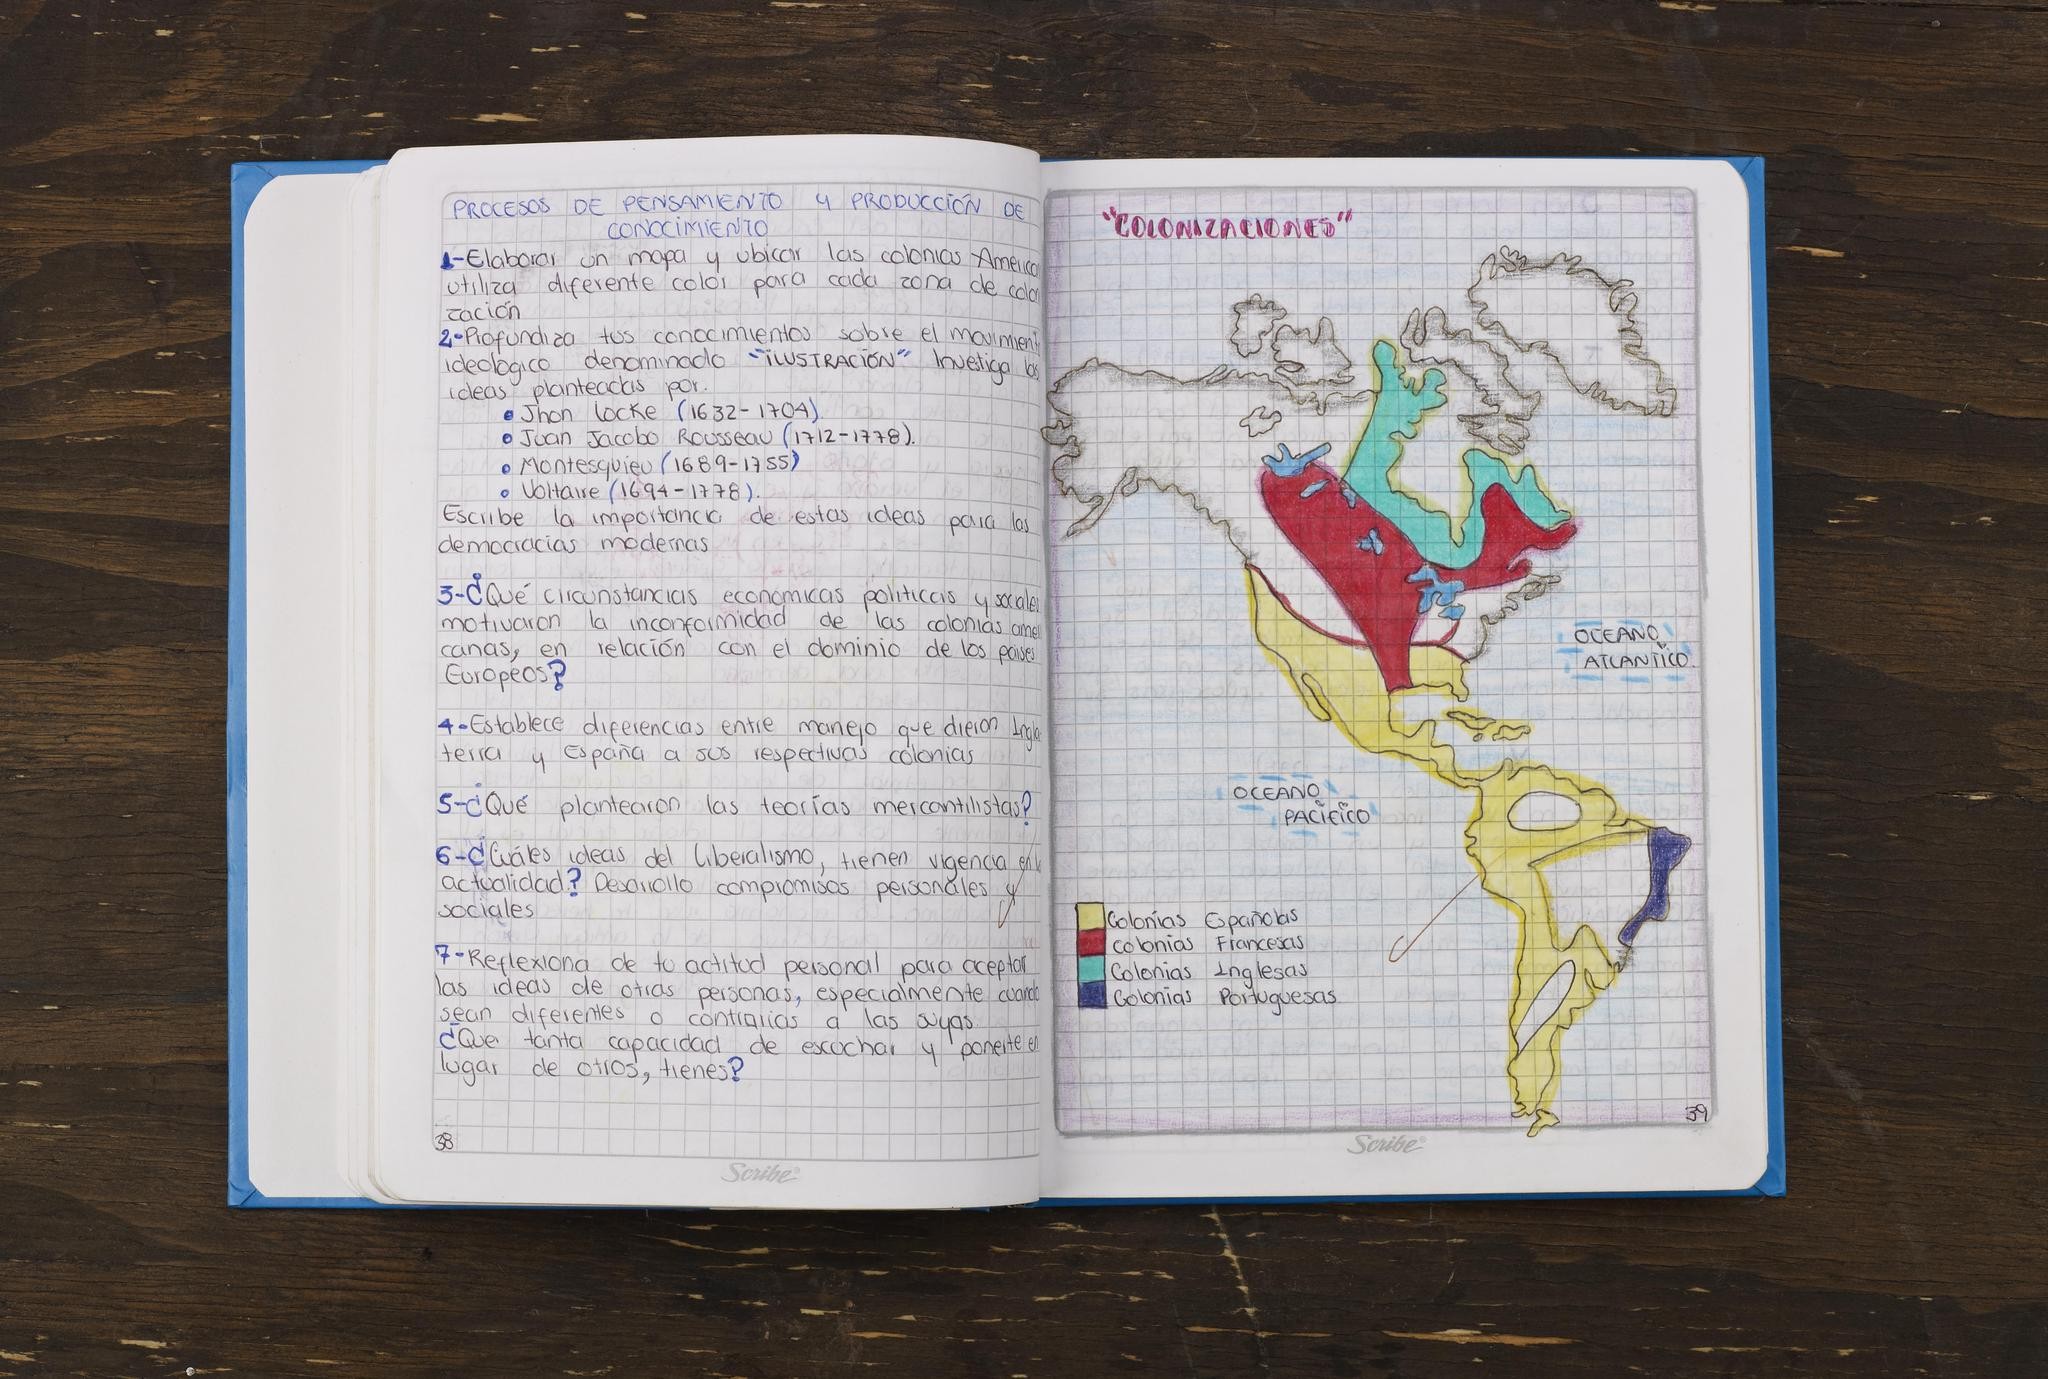 PROCESOS DE PENSAMIENTO Y PRODUCCIÓN DE
CONOCIMIENTO
1-Elaborar un mapa y ubicar las colonias America
utiliza diferente color para cada zona de colon
zación
2-Profundiza tus conocimientos sobre el movimient
ideológico denominado "ILUSTRACIÓN" Investiga las
ideas planteadas por.
• Jhon Locke (1632-1704)
• Juan Jacobo Rousseau (1712-1778).
• Montesquieu (1689-1755)
• Voltaire (1694-1778).
Escribe la importancia de estas ideas para las
democracias modernas
3-¿Qué circunstancias económicas políticas y sociales
motivaron la inconformidad de las colonias ame
canas, en relación con el dominio de los países
Europeos?
4-Establece diferencias entre manejo que dieron Ingla
terra y España a sus respectivas colonias
5-¿Qué plantearon las teorías mercantilistas?
6-¿Cuáles ideas del Liberalismo, tienen vigencia en la
actualidad? Desarrollo compromisos personales y
sociales
7-Reflexiona de tu actitud personal para aceptar
las ideas de otras personas, especialmente cuando
sean diferentes o contrarias a las suyas.
¿Que tanta capacidad de escuchar y ponerte en
lugar de otros, tienes?
38
Scribe®
"COLONIZACIONES"
OCEANO
ATLANTICO.
OCEANO
PACIFICO
Colonias Españolas
Colonias Francesas
Colonias Inglesas
Colonias Portuguesas
39
Scribe®